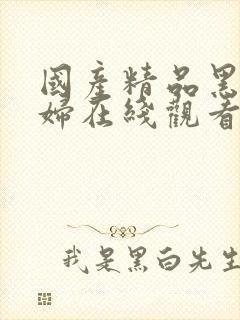 國產精品黑
婦在綫觀看
我是黑白先生